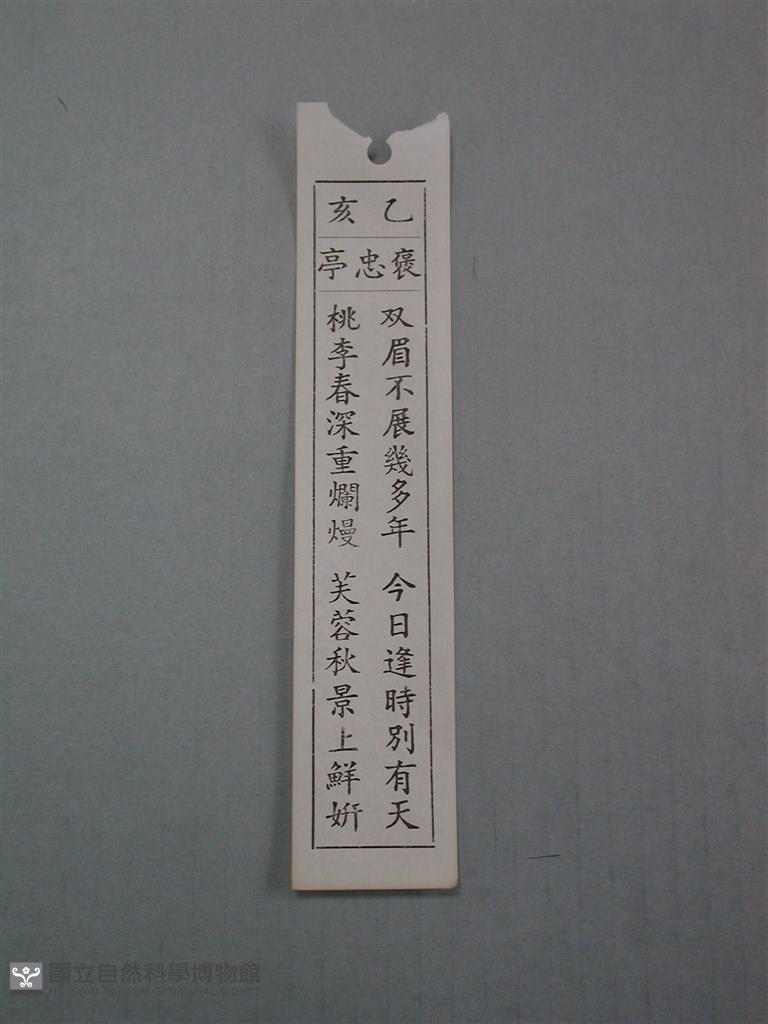 乙亥
褒忠亭
双眉不展幾多年 今日逢時別有天
桃李春深重爛熳 芙蓉秋景上鮮妍
國立自然科學博物館
NATIONAL MUSEUM OF NATURAL SCIENCE